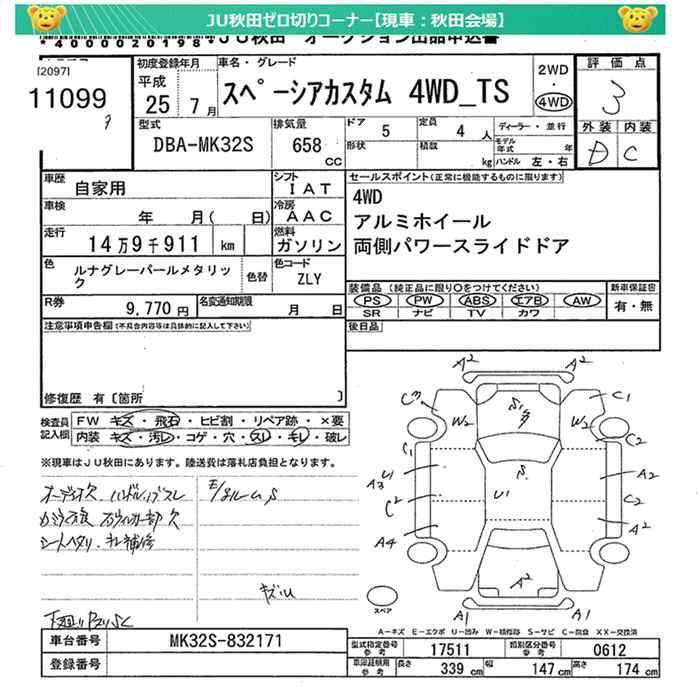 JU秋田ゼロ切りコーナー【現車：秋田会場】
*4000020198* JU秋田 オークション出品申込書
[2097]
11099
初度登録年月
平成
25年7月
車名・グレード
スペーシアカスタム 4WD_TS
2WD
・
4WD
評価点
3
外装 内装
D C
型式
DBA-MK32S
排気量
658
CC
ドア 5
定員 4 人
ディーラー・並行
形状
積載 kg
モデル年式 年
ハンドル 左・右
車歴 自家用
シフト IAT
車検 年 月( 日)
冷房 AAC
走行 14万9千911 km
燃料 ガソリン
色 ルナグレーパールメタリック
色替
色コード ZLY
R券 9,770円
名変通知期限 月 日
セールスポイント(正常に機能するものに限ります)
4WD
アルミホイール
両側パワースライドドア
装備品(純正品に限り○をつけてください)
新車保証書
PS PW ABS エアB AW
SR ナビ TV カワ
有・無
後日品
注意事項申告欄(不具合内容等は具体的に記入して下さい)
修復歴 有 [箇所 ]
検査員記入欄
FW キズ・飛石・ヒビ割・リペア跡・×要
内装 キズ・汚レ・コゲ・穴・スレ・キレ・破レ
※現車はJU秋田にあります。陸送費は落札店負担となります。
オーディオ欠
シートヘタリ
A2 A2
C3 C1
W2 W2
S
C1 C2
U1
A3 A2
S
U1
C2 C2
A2
A4
A2
A1 A1
スペア
A－キズ E－エクボ U－凹み W－補修跡 S－サビ C－腐食 XX－交換済
車台番号 MK32S-832171
登録番号
型式指定番号 参考 17511
類別区分番号 参考 0612
車庫証明用 参考 長さ 339 cm 幅 147 cm 高さ 174 cm